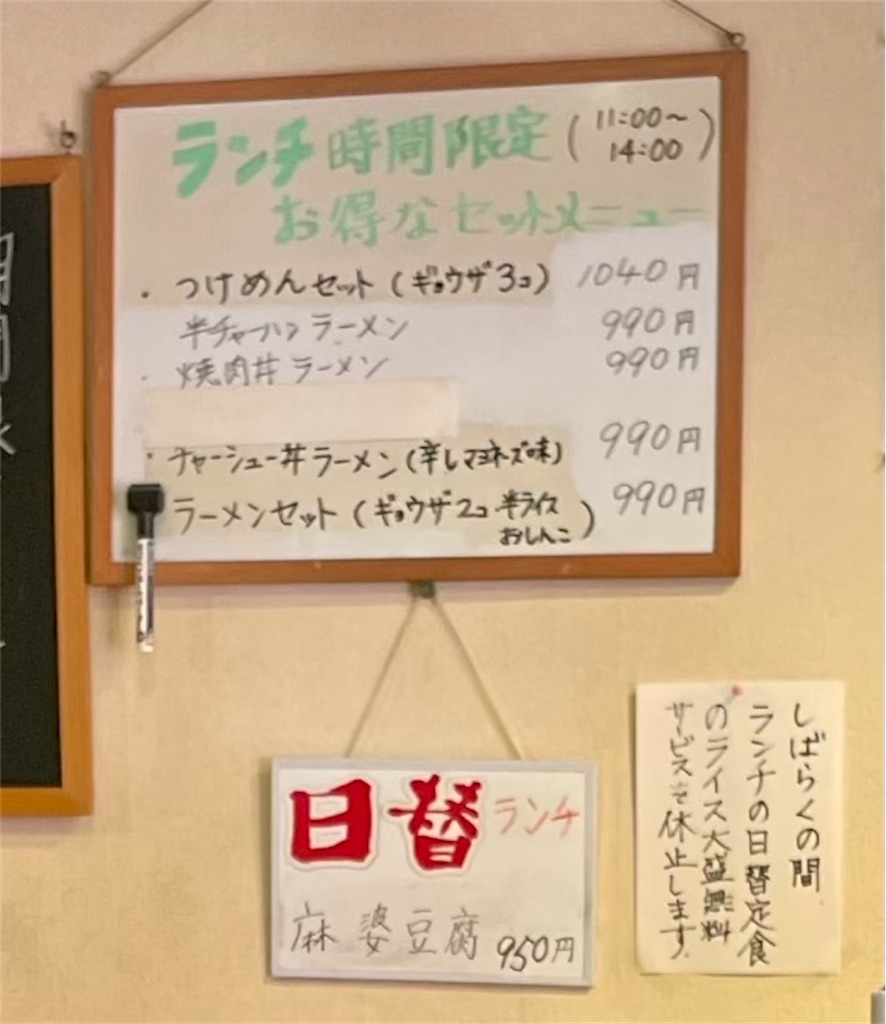 ランチ時間限定(11:00〜14:00)
お得なセットメニュー
・つけめんセット(ギョウザ3コ) 1040円
半チャーハンラーメン 990円
・焼肉丼ラーメン 990円
・チャーシュー丼ラーメン(辛しマヨネーズ味) 990円
ラーメンセット(ギョウザ2コ 半ライス おしんこ) 990円
日替ランチ
麻婆豆腐 950円
しばらくの間
ランチの日替定食
のライス大盛無料
サービスを休止します。